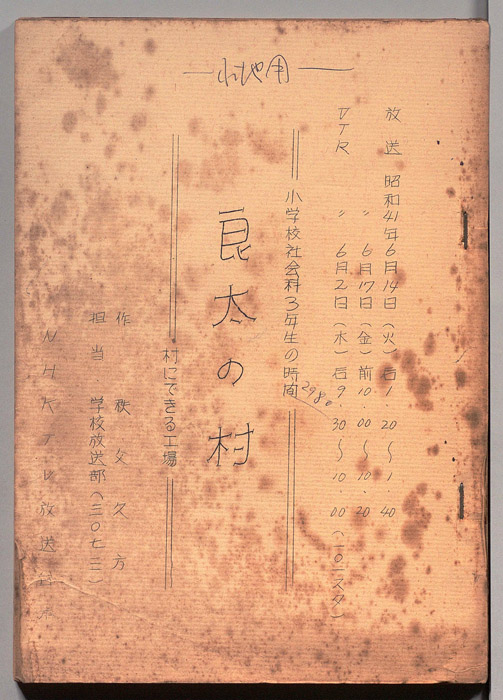 放送 昭和41年6月14日（火）后1.20〜1.40
〃 6月17日（金）前10.00〜10.20
VTR 〃 6月2日（木）后9.30〜10.00（一〇一スタ）
小学校社会科3年生の時間
2980
良太の村
村にできる工場
作 秩父久方
担当 学校放送部（三〇七二）
NHKTV放送